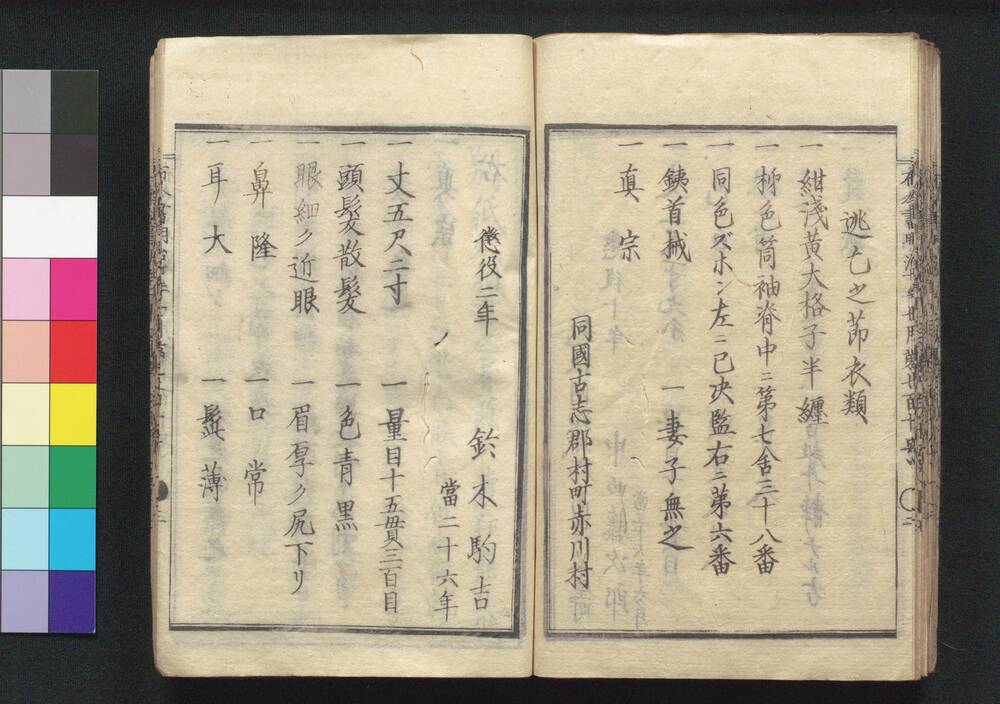 逃亡之節衣類
一 紺淺黄大格子半纏
一 柳色筒袖脊中ニ第七舍三十八番
一 同色ズボン左ニ已决監右ニ第六番
一 銕首械 一 妻子無之
一 真宗
同國古志郡村町赤川村
懲役二年 鈴木駒吉
當二十六年
一 丈五尺二寸 一 量目十五貫三百目
一 頭髪散髪 一 色青黒
一 眼細ク近眼 一 眉厚ク尻下リ
一 鼻隆 一 口常
一 耳大 一 髭薄